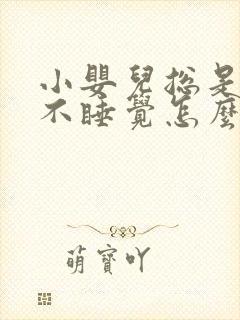 小嬰兒總是
不睡覺怎麼
萌寶吖